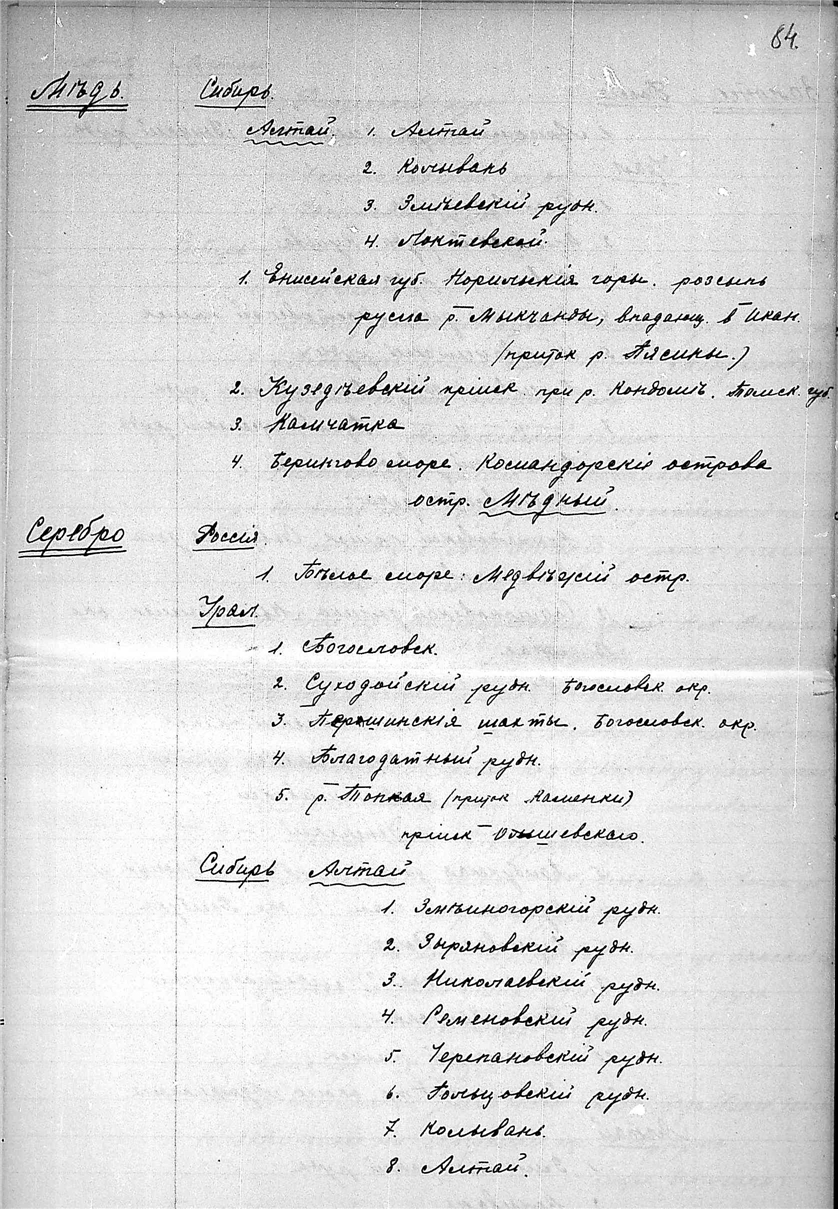 84.
Мѣдь. Сибирь.
Алтай. 1. Алтай
2. Колывань
3. Змѣевскій рудн.
4. Локтевской.
1. Енисейская губ. Норильскія горы. розсыпь
русла р. Мыкчанды, впадающ. в Икан.
(приток р. Пясины.)
2. Кузедѣевскій пріиск при р. Кондомѣ. Томск. губ.
3. Камчатка
4. Берингово море. Командорскіе острова
остр. Мѣдный.
Серебро Россія
1. Бѣлое море: Медвѣжій остр.
Урал.
1. Богословск.
2. Суходойскій рудн. Богословск. окр.
3. Першинскія шахты. Богословск. окр.
4. Благодатный рудн.
5. р. Топкая (приток Каменки)
пріиск
Сибирь Алтай
1. Змѣиногорскій рудн.
2. Зыряновскій рудн.
3. Николаевскій рудн.
4. Семеновскій рудн.
5. Черепановскій рудн.
6. Гольцовскій рудн.
7. Колывань.
8. Алтай.